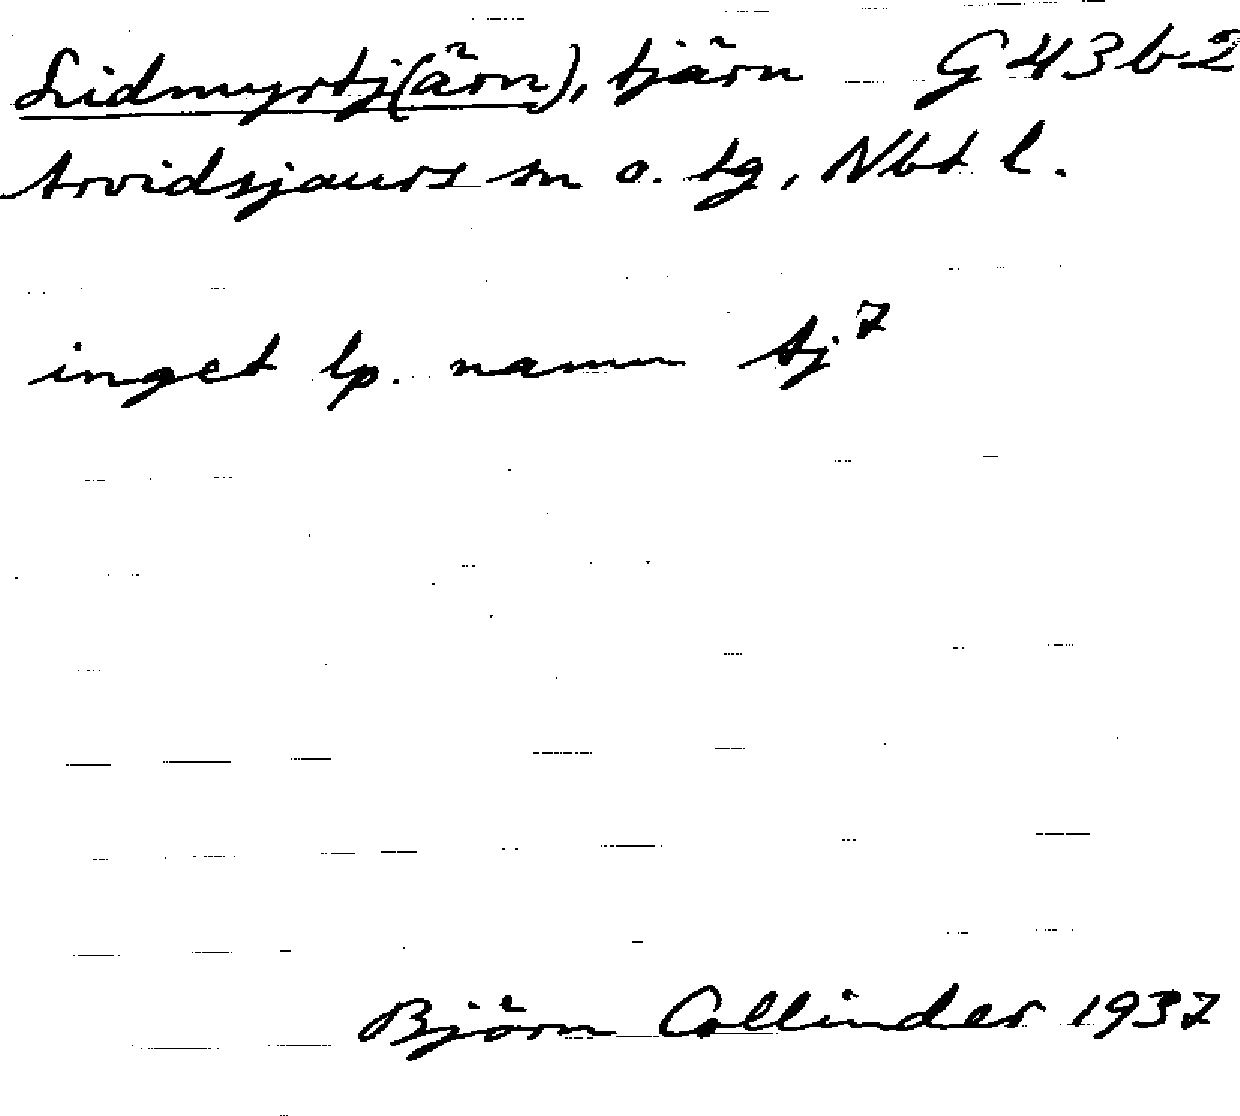 Lidmyrtj(ärn), tjärn G 43 b 2
Arvidsjaurs sn o. tg, Nbt l.
inget lp. namn Aj⁷
Björn Collinder 1937